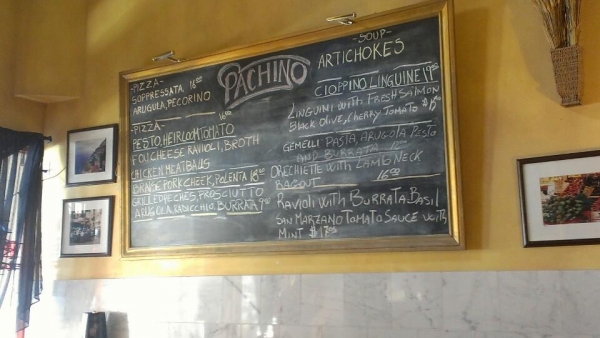 PACHINO
-PIZZA-
SOPPRESSATA 16.00
ARUGULA, PECORINO
-PIZZA-
16.00
PESTO, HEIRLOOM TOMATO
FOUR CHEESE RAVIOLI, BROTH
CHICKEN MEATBALLS
BRAISE PORK CHEEK, POLENTA 18.00
GRILLED PECHES, PROSCIUTTO
ARUGULA, RADICCHIO, BURRATA
-SOUP-
ARTICHOKES
CIOPPINO LINGUINE 19.95
LINGUINI WITH FRESH SALMON
BLACK OLIVE, CHERRY TOMATO
GEMELLI PASTA, ARUGOLA PESTO
AND BURRATA
ORECHIETTE WITH LAMB NECK
RAGOUT 16.00
RAVIOLI WITH BURRATA BASIL
SAN MARZANO TOMATO SAUCE WITH
MINT